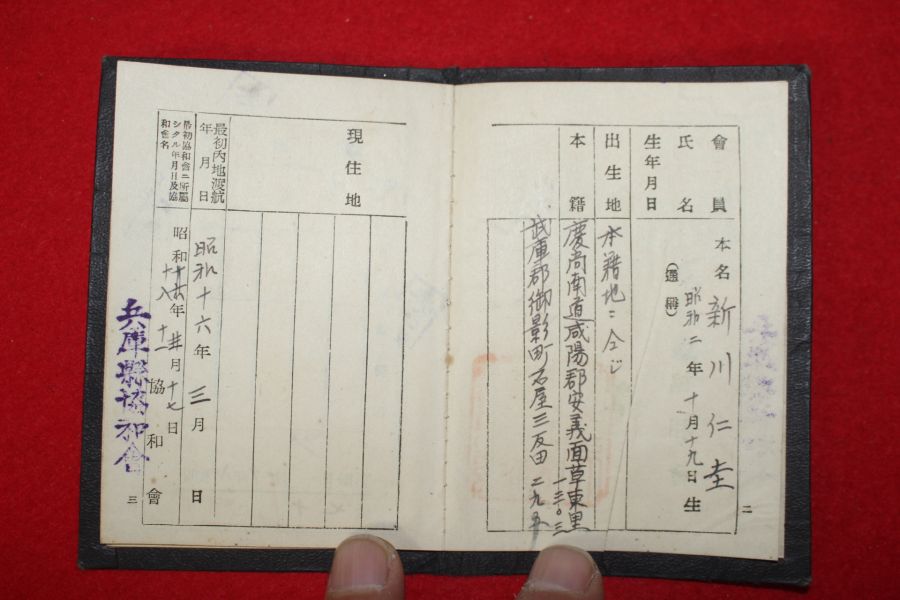 會員
氏名
本名 新川仁圭
(通稱)
生年月日
昭和二年十月十九日生
出生地
本籍地ニ仝ジ
本籍
慶尚南道咸陽郡安義面草東里
一三〇三
武庫郡御影町石屋三反田二九五
二
現住地
最初內地渡航
年月日
昭和十六年三月 日
最初協和會ニ所屬
シタル年月日及協
和會名
昭和 年 月十七日
十八 十二
協和會
兵庫縣協和會
三